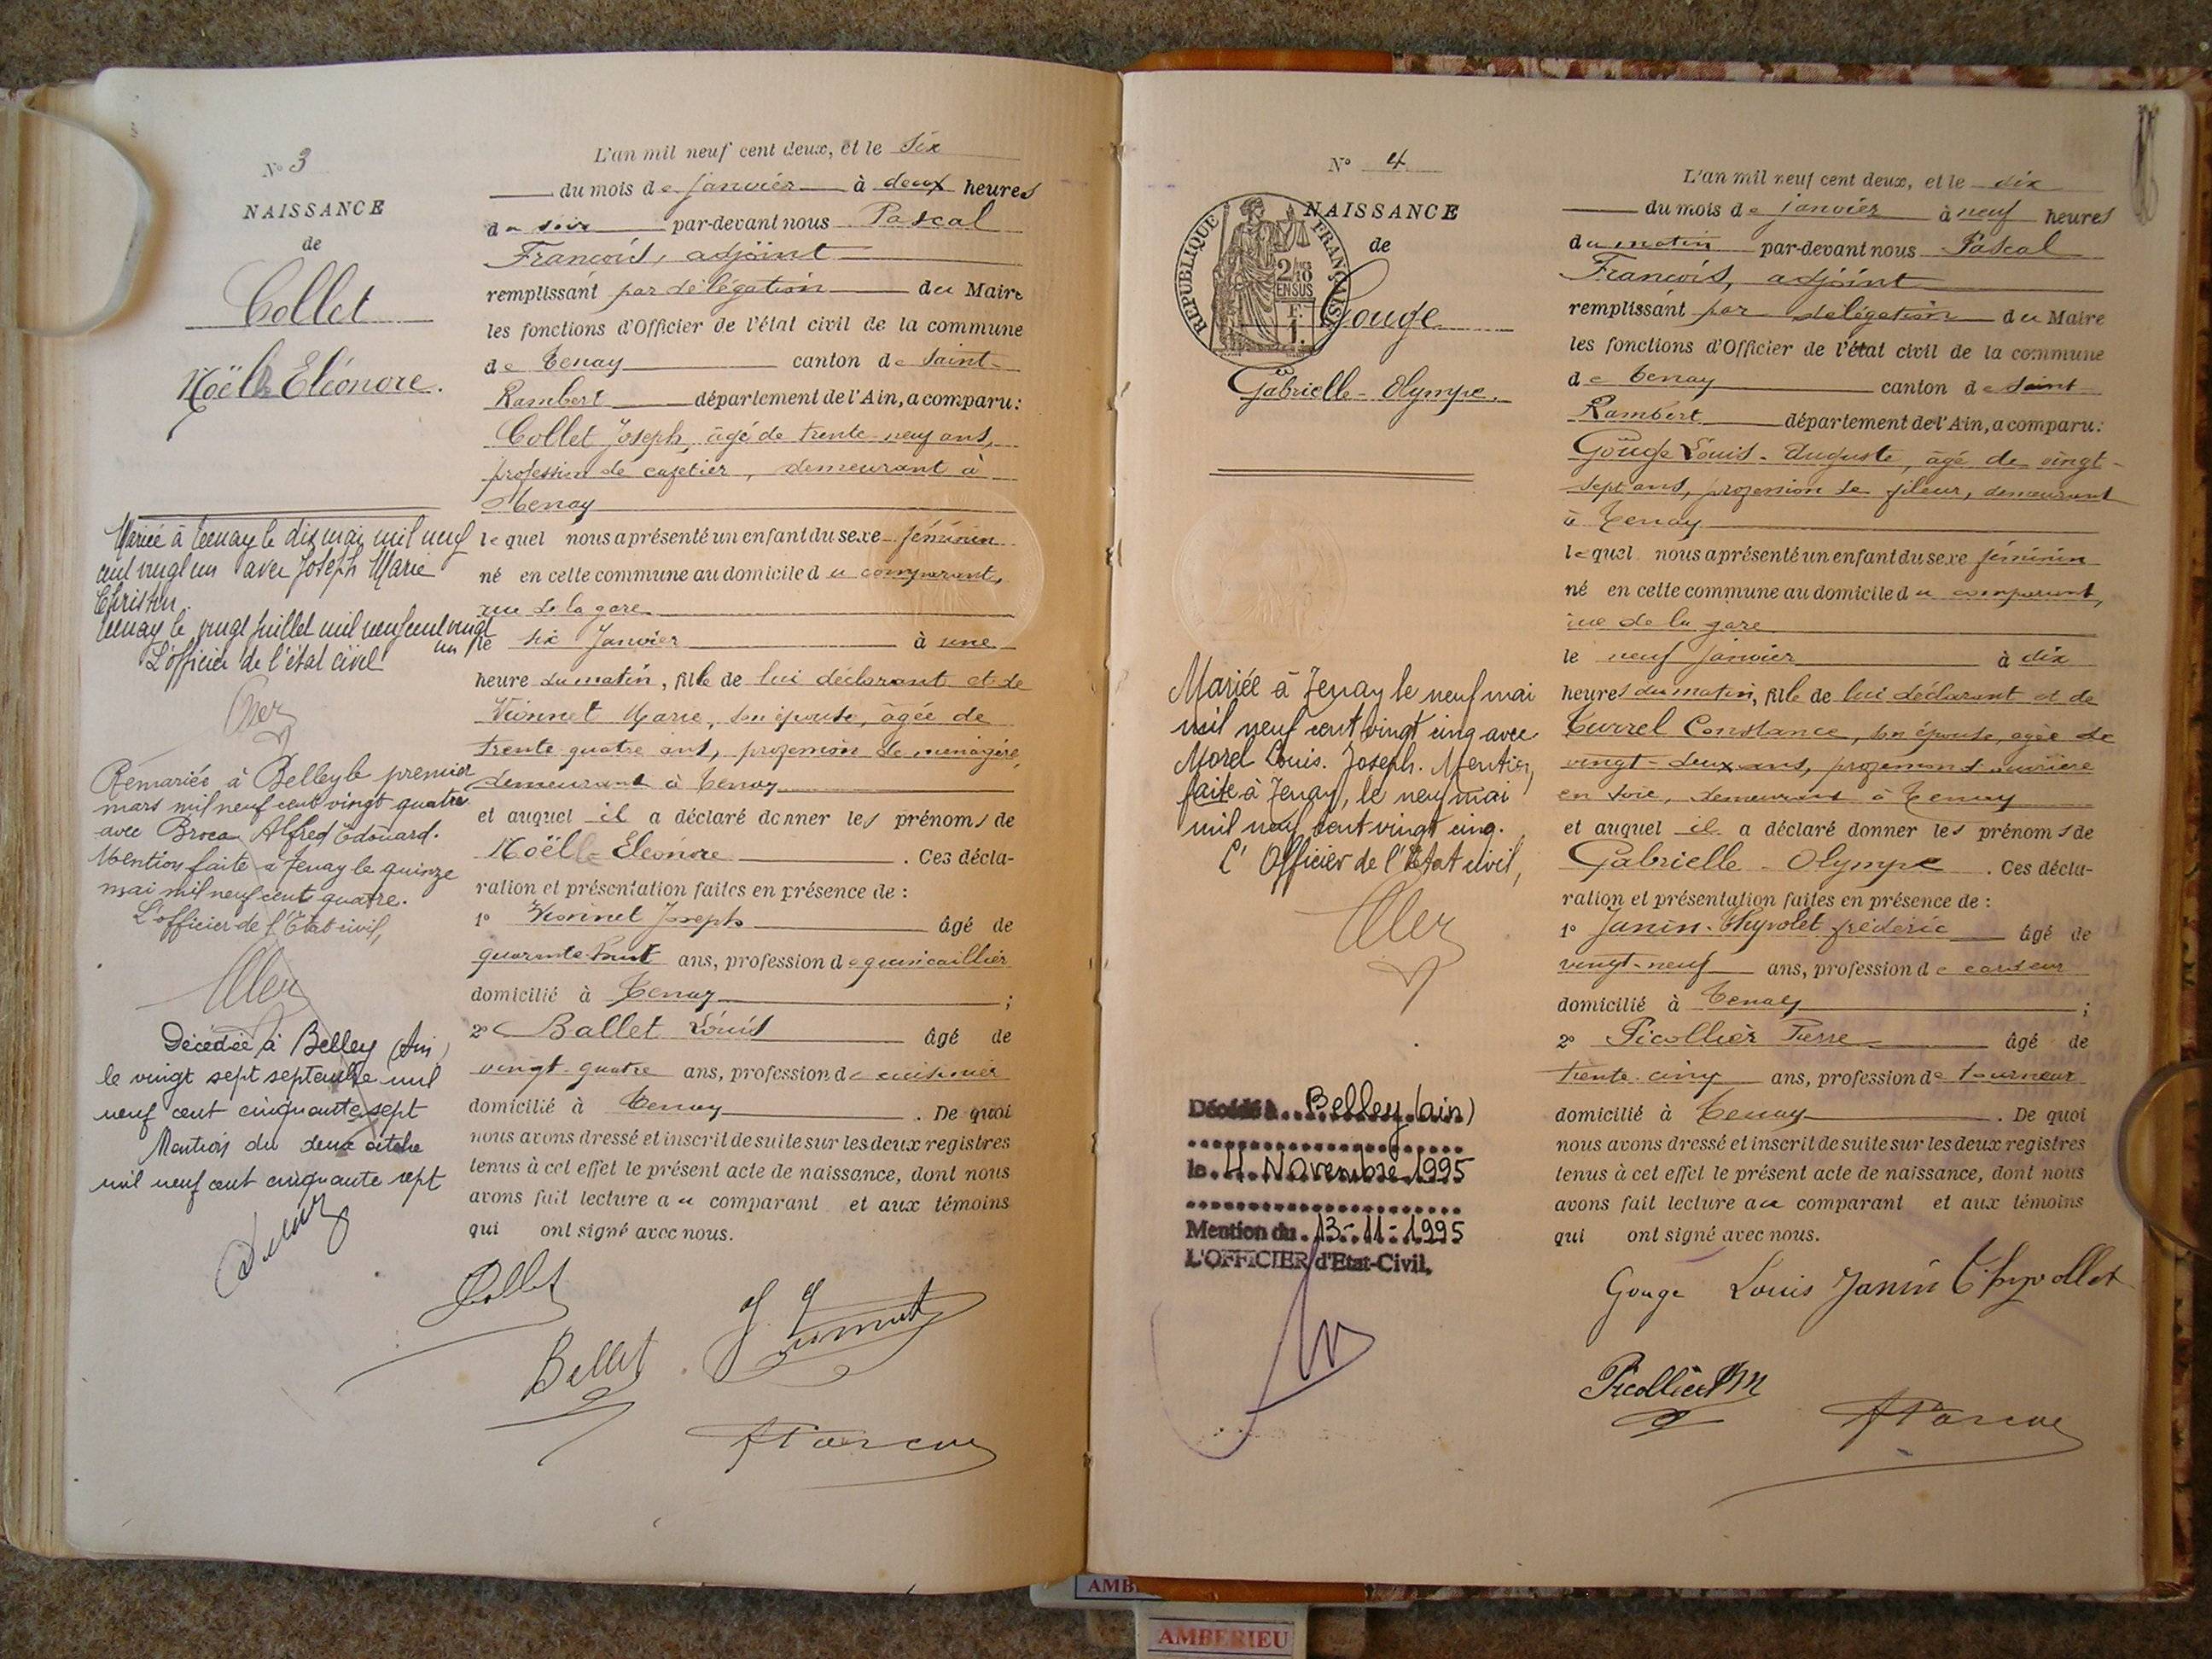 N° 3
NAISSANCE
de
Collet
Noëlle Eléonore.
Mariée à Tenay le dix mai mil neuf
cent vingt un avec Joseph Marie
Tenay le vingt juillet mil neuf cent vingt
un
L'officier de l'état civil
Remariée à Belley le premier
mars mil neuf cent vingt quatre
avec Broca Alfred Edouard.
Mention faite à Tenay le quinze
mai mil neuf cent quatre.
L'officier de l'Etat civil,
Décédée à Belley (Ain)
le vingt sept septembre mil
neuf cent cinquante sept
Mention du deux octobre
mil neuf cent cinquante sept
L'an mil neuf cent deux, et le six
du mois de janvier à deux heures
du soir par-devant nous Pascal
François, adjoint
remplissant par délégation du Maire
les fonctions d'Officier de l'état civil de la commune
de Tenay canton de Saint-
Rambert département de l'Ain, a comparu:
Collet Joseph, âgé de trente-neuf ans,
profession de cafetier, demeurant à
Tenay
lequel nous a présenté un enfant du sexe féminin
né en cette commune au domicile du comparant,
rue de la gare
le six Janvier à une
heure du matin, fille de lui déclarant et de
Vionnet Marie, son épouse, âgée de
trente quatre ans, profession de ménagère,
demeurant à Tenay
et auquel il a déclaré donner les prénoms de
Noëlle Eléonore . Ces décla-
ration et présentation faites en présence de :
1° Vionnet Joseph âgé de
quarante-huit ans, profession de quincaillier
domicilié à Tenay ;
2° Ballet Louis âgé de
vingt-quatre ans, profession de cuisinier
domicilié à Tenay . De quoi
nous avons dressé et inscrit de suite sur les deux registres
tenus à cet effet le présent acte de naissance, dont nous
avons fait lecture au comparant et aux témoins
qui ont signé avec nous.
Collet
Ballet
N° 4
NAISSANCE
de
Gouge
Gabrielle-Olympe.
REPUBLIQUE FRANÇAISE
2/10
EN SUS
F.
1.
Mariée à Tenay le neuf mai
mil neuf cent vingt cinq avec
Morel Louis. Joseph. Mention
faite à Tenay, le neuf mai
mil neuf cent vingt cinq.
L'Officier de l'Etat civil,
Décédé à Belley (ain)
le 4 Novembre 1995
Mention du 13-11-1995
L'OFFICIER d'Etat-Civil,
L'an mil neuf cent deux, et le dix
du mois de janvier à neuf heures
du matin par-devant nous Pascal
François, adjoint
remplissant par délégation du Maire
les fonctions d'Officier de l'état civil de la commune
de Tenay canton de Saint
Rambert département de l'Ain, a comparu:
Gouge Louis-Auguste, âgé de vingt-
sept ans, profession de fileur, demeurant
à Tenay
lequel nous a présenté un enfant du sexe féminin
né en cette commune au domicile du comparant,
rue de la gare
le neuf janvier à dix
heures du matin, fille de lui déclarant et de
Turrel Constance, son épouse, âgée de
vingt-deux ans, profession d'ouvrière
en soie, demeurant à Tenay
et auquel il a déclaré donner les prénoms de
Gabrielle-Olympe . Ces décla-
ration et présentation faites en présence de :
1° Janin-Thyvolet frédéric âgé de
vingt-neuf ans, profession de cardeur
domicilié à Tenay ;
2° Picollier Pierre âgé de
trente-cinq ans, profession de tourneur
domicilié à Tenay . De quoi
nous avons dressé et inscrit de suite sur les deux registres
tenus à cet effet le présent acte de naissance, dont nous
avons fait lecture au comparant et aux témoins
qui ont signé avec nous.
Gouge Louis Janin Thyvollet
Picollier
AMBERIEU